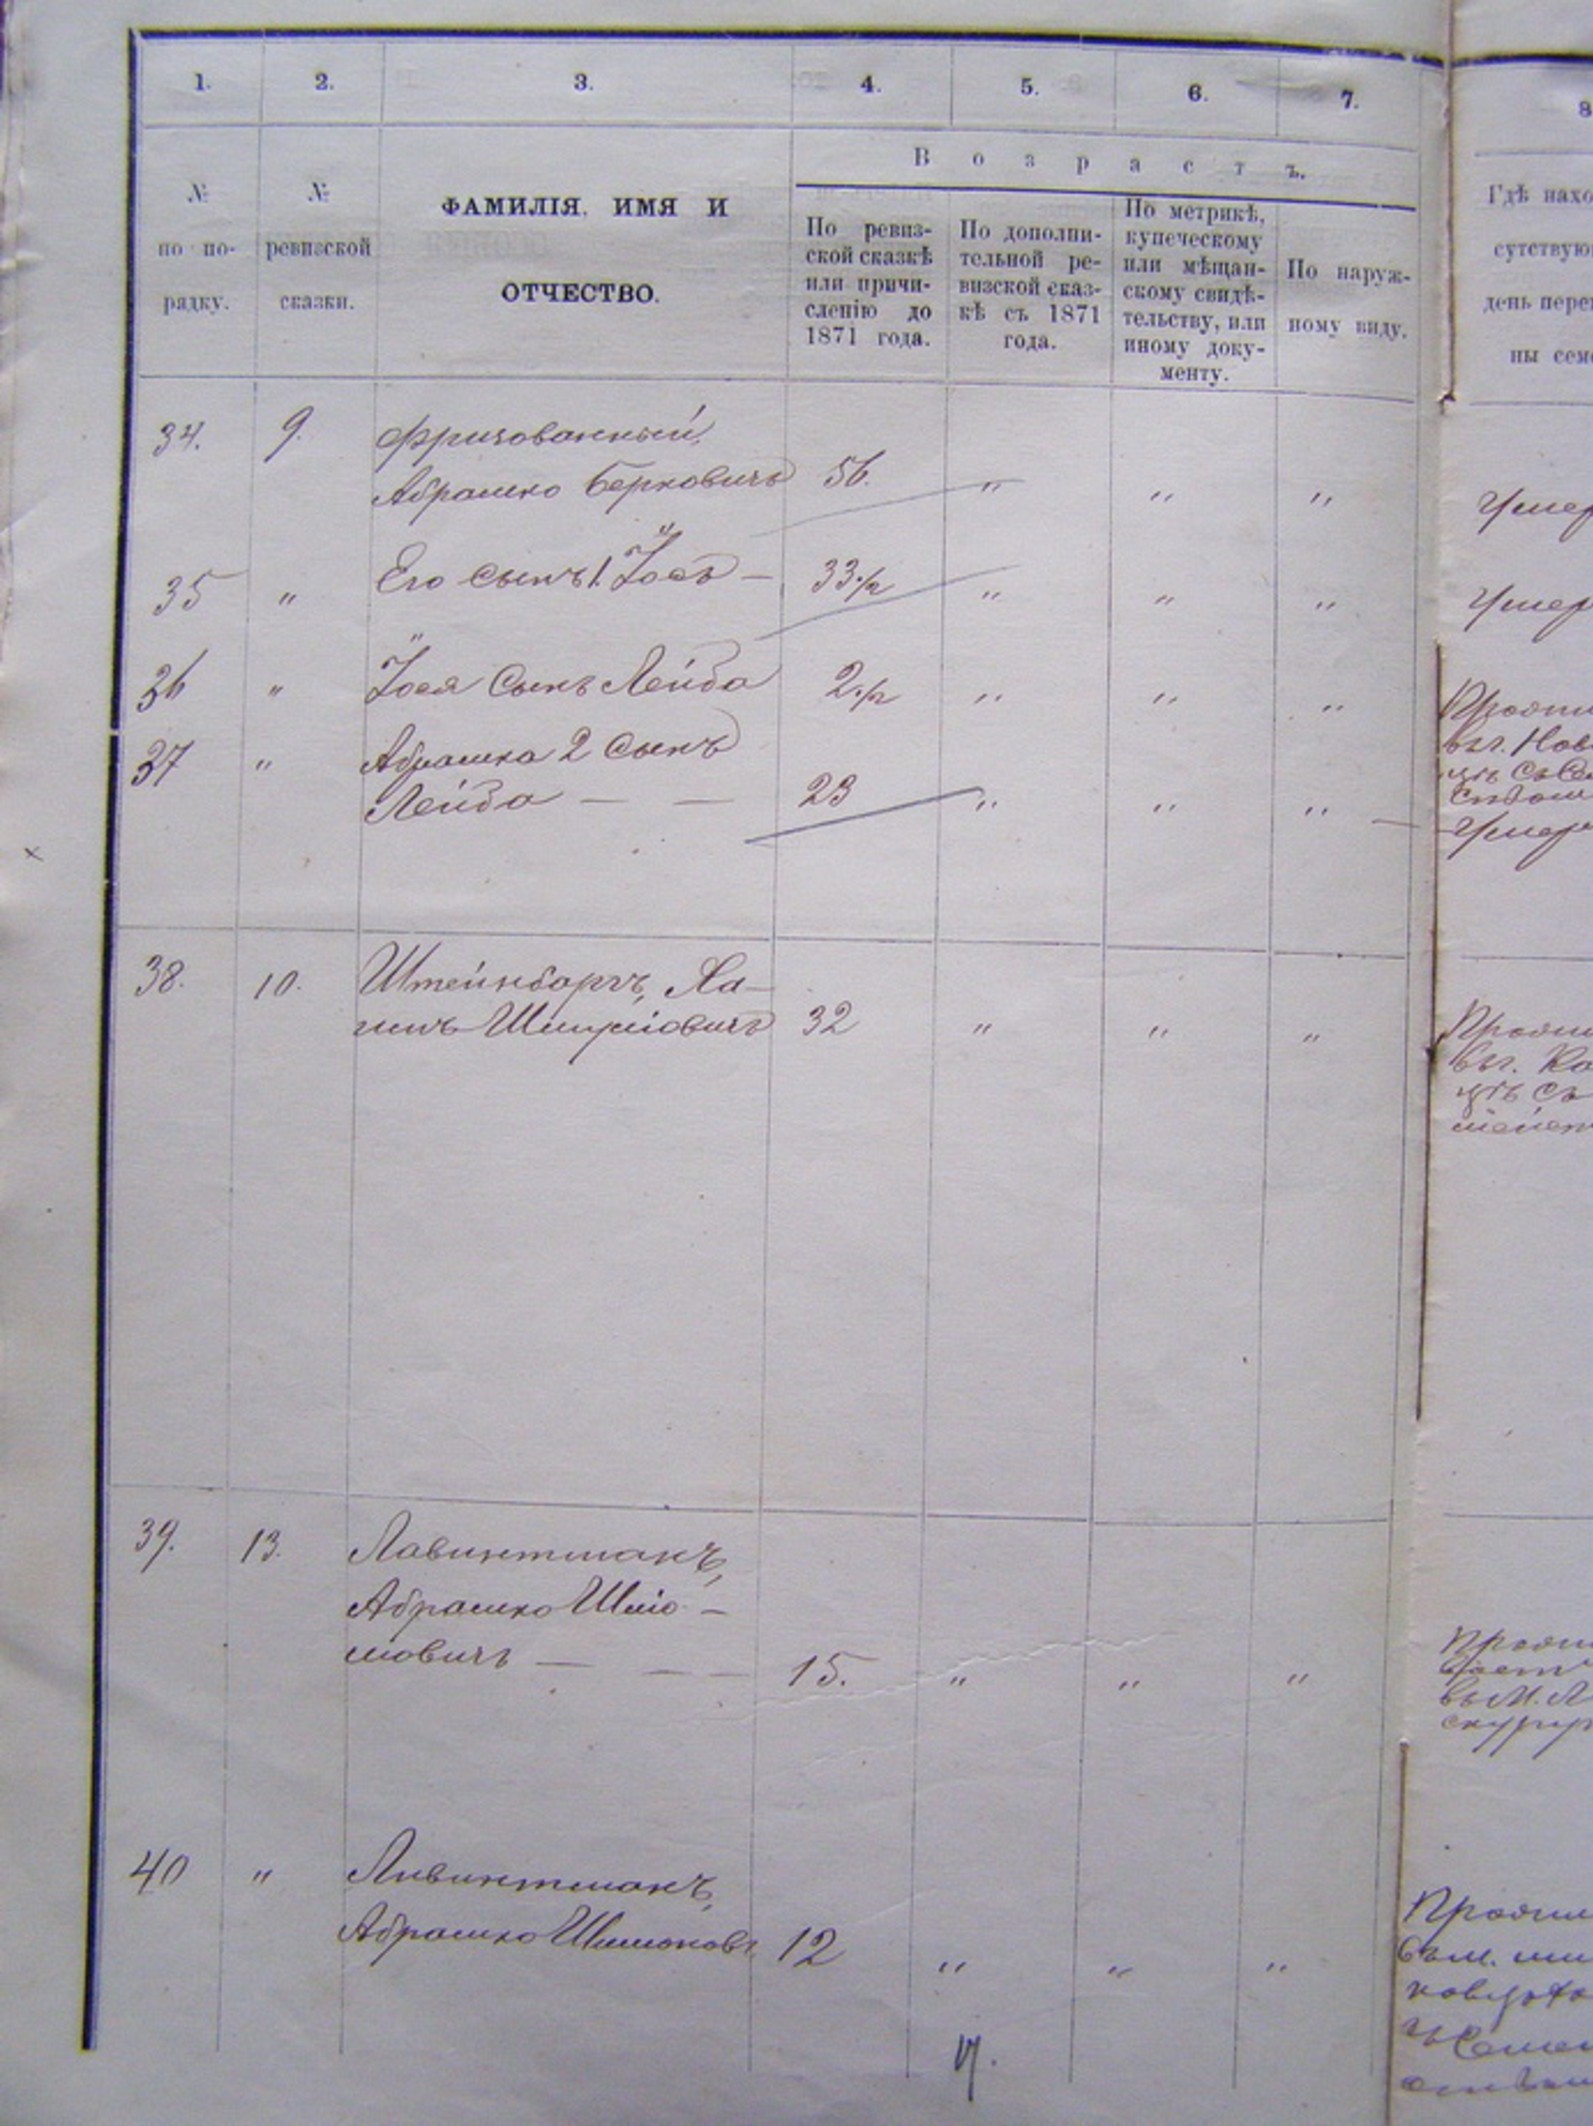 1. 2. 3. 4. 5. 6. 7. 8
№ по по-рядку.
№ ревизской сказки.
ФАМИЛІЯ, ИМЯ И
ОТЧЕСТВО.
Возрастъ.
По ревиз-
ской сказкѣ
или причи-
сленію до
1871 года.
По дополни-
тельной ре-
визской сказ-
кѣ съ 1871
года.
По метрикѣ,
купеческому
или мѣщан-
скому свидѣ-
тельству, или
иному доку-
менту.
По наруж-
ному виду.
Гдѣ нахо
сутствую
день пере
ны сем
34. 9. Фризованный,
Абрашко Берковичъ 56. " " " Умер
35 " Его сынъ 1. Іось — 33 1/2 " " " Умер
36 " Іося сынъ Лейба 2 1/2 " " "
37 " Абрашка 2 сынъ
Лейба — — 23 " " " — Умер
38. 10. Штейнбаргъ, Ха-
имъ Шмуліовичъ 32 " " "
39. 13. Лавинтманъ,
Абрашко Шліо-
мовичъ — — — 15. " " "
40 " Ливинтманъ,
Абрашко Шимонов. 12 " " "